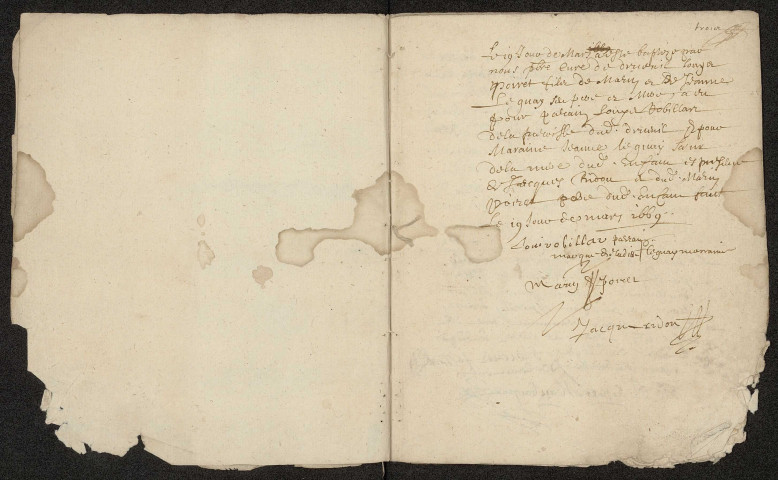 trois
Le 19 Jour de Mars a este baptize par
nous pbre Curé de drieul Louys
poiret filz de Marin et de Jeanne
Le quay ses pere et Mere a eu
pour parain Louys Robillar
de la paroisse dud. drieul et pour
Maraine Jeanne le quay sœur
de la mere dud. Enfant et presence
de Jacques ridou et dud. Marin
poiret pere dud. Enfant faict
le 19 Jour de mars 1669
Louis robillar parain
marque de ladite le quay marraine
Marin poiret
Jacque ridou